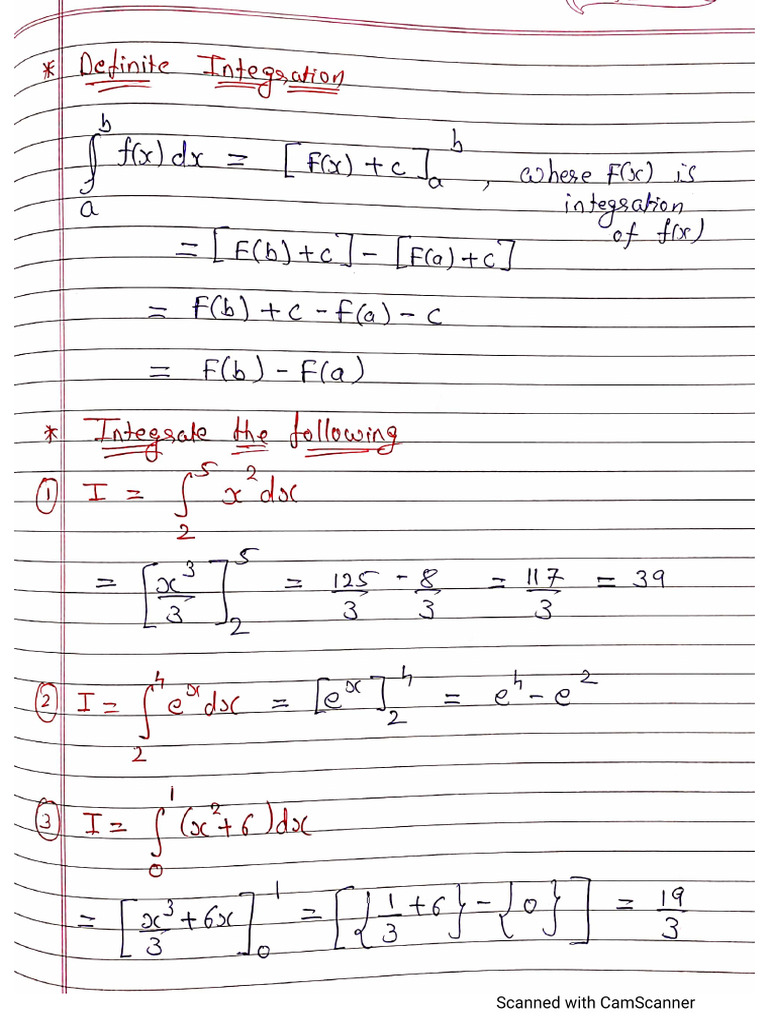 * Definite Integration
∫_a^b f(x) dx = [F(x) + c]_a^b , where F(x) is
integration
of f(x)
= [F(b) + c] - [F(a) + c]
= F(b) + c - F(a) - c
= F(b) - F(a)
* Integrate the following
① I = ∫_2^5 x² dx
= [x³/3]_2^5 = 125/3 - 8/3 = 117/3 = 39
② I = ∫_2^4 eˣ dx = [eˣ]_2^4 = e⁴ - e²
③ I = ∫_0^1 (x² + 6) dx
= [x³/3 + 6x]_0^1 = [{1/3 + 6} - {0}] = 19/3
Scanned with CamScanner